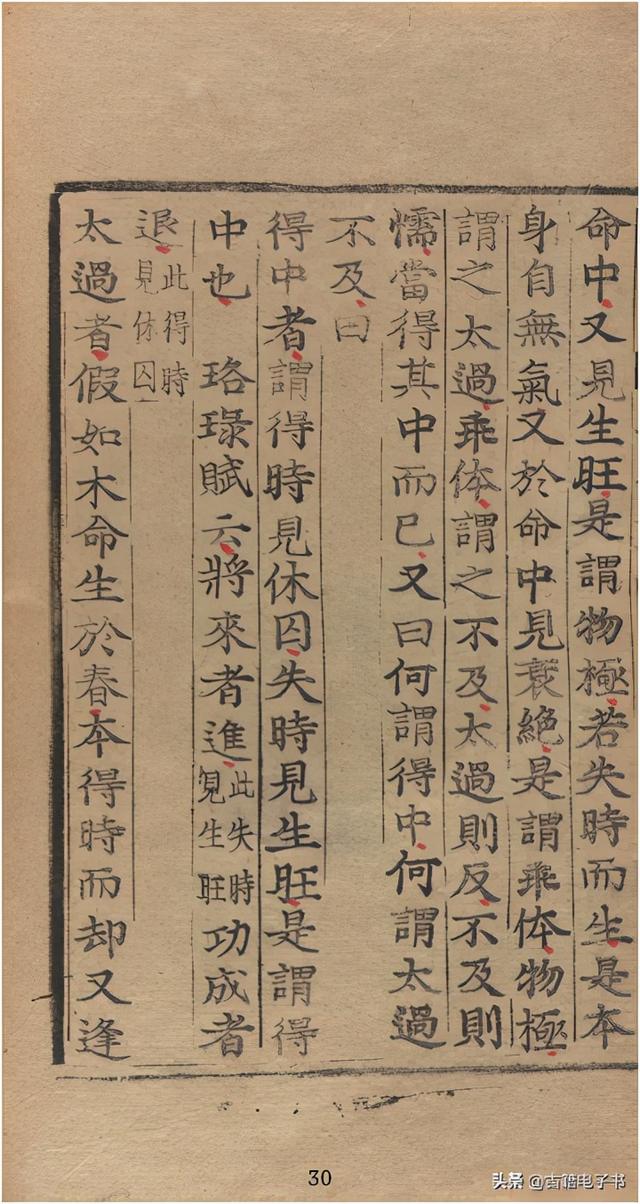 命中又見生旺是謂物極若失時而生是本
身自無氣又於命中見衰絕是謂乖体物極
謂之太過乖体謂之不及太過則反不及則
懦當得其中而已又曰何謂得中何謂太過
不及曰
得中者謂得時見休囚失時見生旺是謂得
中也 珞琭賦云將來者進此失時見生旺功成者
退此得時見休囚
太過者假如木命生於春本得時而却又逢
30
头条 @古籍电子书